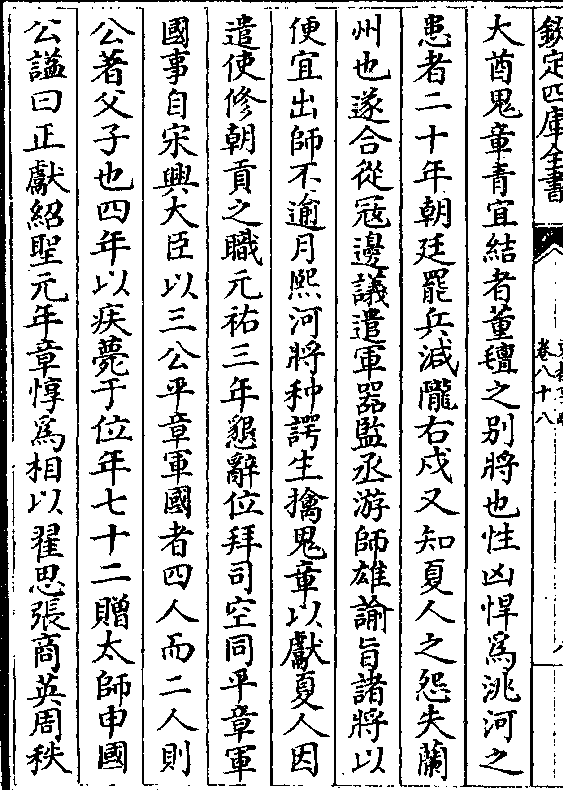 欽定四庫全書
卷八十八
大酋鬼章青宜結者董氊之别將也性凶悍爲洮河之
患者二十年朝廷罷兵減隴右戍又知夏人之怨失蘭
州也遂合從冦邊議遣軍器監丞游師雄諭旨諸將以
便宜出師不逾月熙河將种諤生擒鬼章以獻夏人因
遣使修朝貢之職元祐三年懇辭位拜司空同平章軍
國事自宋興大臣以三公平章軍國者四人而二人則
公著父子也四年以疾薨于位年七十二贈太師申國
公諡曰正獻紹聖元年章惇爲相以翟思張商英周秩